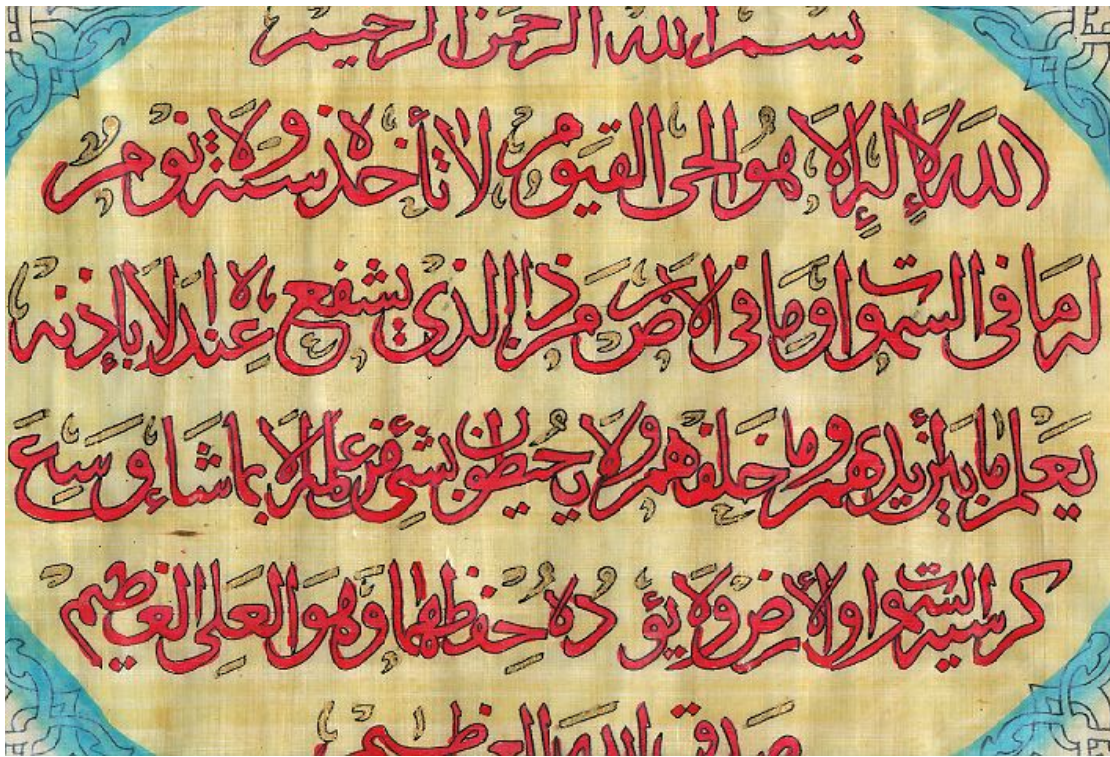 بسم الله الرحمن الرحيم
الله لا إله إلا هو الحي القيوم لا تأخذه سنة ولا نوم
له ما فى السموات وما فى الارض من ذا الذي يشفع عنده الا بإذنه
يعلم ما بين أيديهم وما خلفهم ولا يحيطون بشئ من علمه الا بما شاء وسع
كرسيه السموات والأرض ولا يؤده حفظهما وهو العلى العظيم
صدق الله العظيم